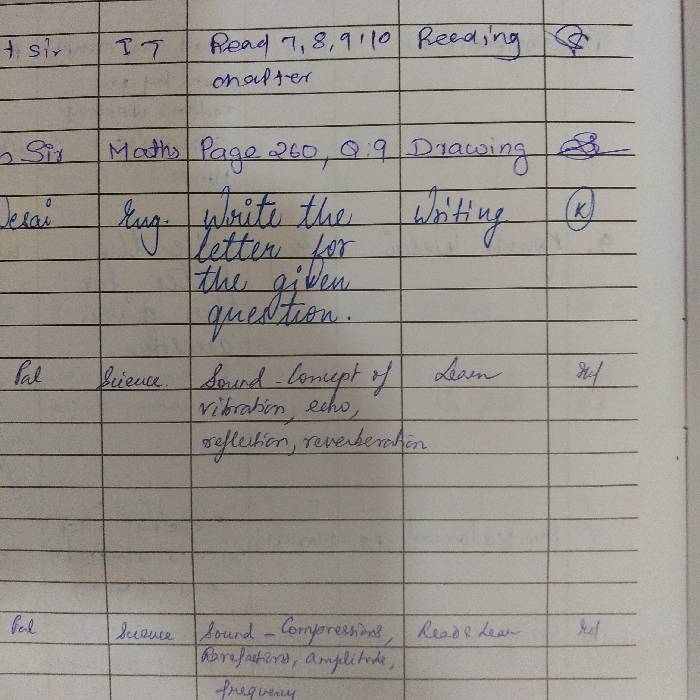 t sir IT Read 7, 8, 9, 10 Reading
chapter
Sir Maths Page 260, Q:9 Drawing
Desai Eng. Write the Writing K
letter for
the given
question.
Pal Science. Sound - Concept of Learn
vibration, echo,
reflection, reverberation
Pal Science Sound - Compressions, Read & Learn
Rarefactions, amplitude,
frequency